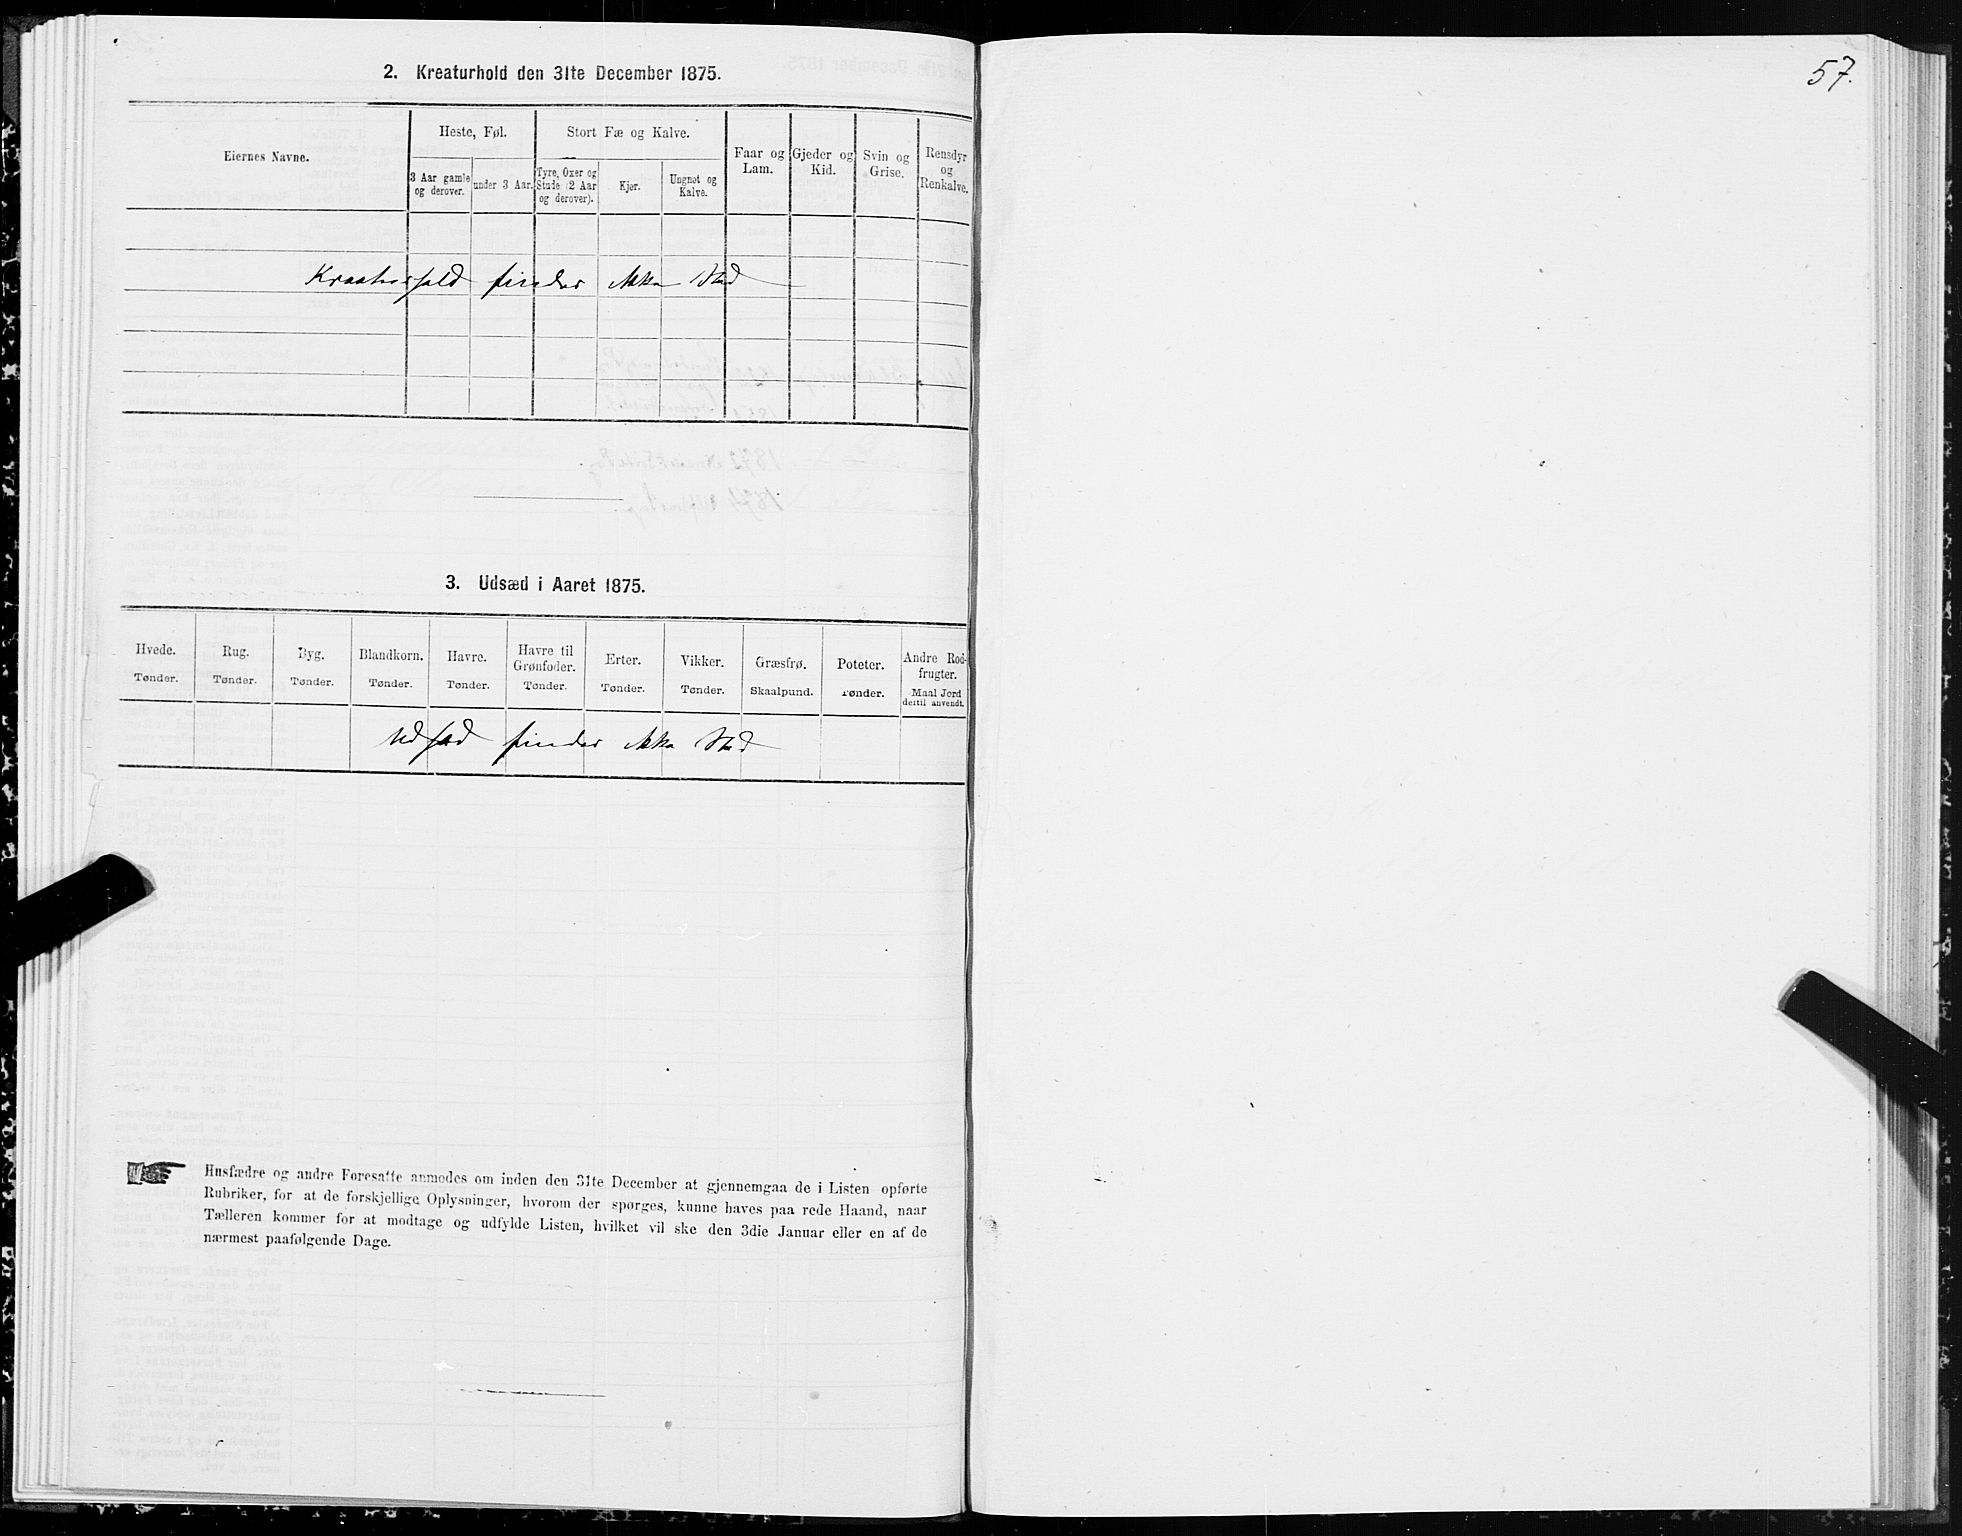 2. Kreaturhold den 31te December 1875.
Eiernes Navne.
Heste, Føl.
3 Aar gamle og derover.
under 3 Aar.
Stort Fæ og Kalve.
Tyre, Oxer og Stude (2 Aar og derover).
Kjer.
Ungnøt og Kalve.
Faar og Lam.
Gjeder og Kid.
Svin og Grise.
Rensdyr og Renkalve.
Kreaturhold finder ikke Sted
3. Udsæd i Aaret 1875.
Hvede. Tønder.
Rug. Tønder.
Byg. Tønder.
Blandkorn. Tønder.
Havre. Tønder.
Havre til Grønfoder. Tønder.
Erter. Tønder.
Vikker. Tønder.
Græsfrø. Skaalpund.
Poteter. Tønder.
Andre Rodfrugter. Maal Jord dertil anvendt.
Udsæd finder ikke Sted
Husfædre og andre Foresatte anmodes om inden den 31te December at gjennemgaa de i Listen opførte
Rubriker, for at de forskjellige Oplysninger, hvorom der spørges, kunne haves paa rede Haand, naar
Tælleren kommer for at modtage og udfylde Listen, hvilket vil ske den 3die Januar eller en af de
nærmest paafølgende Dage.
57.